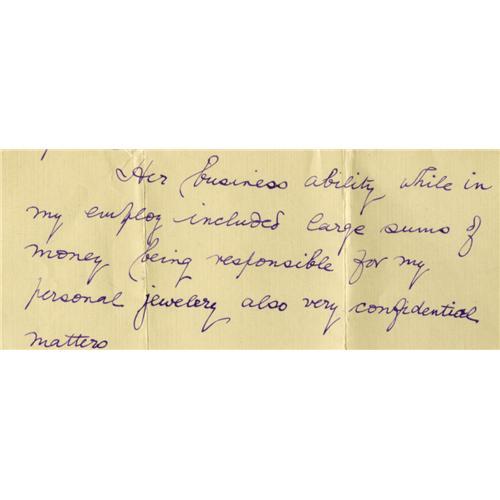 Her business ability while in
my employ included large sums of
money being responsible for my
personal jewelery also very confidential
matters